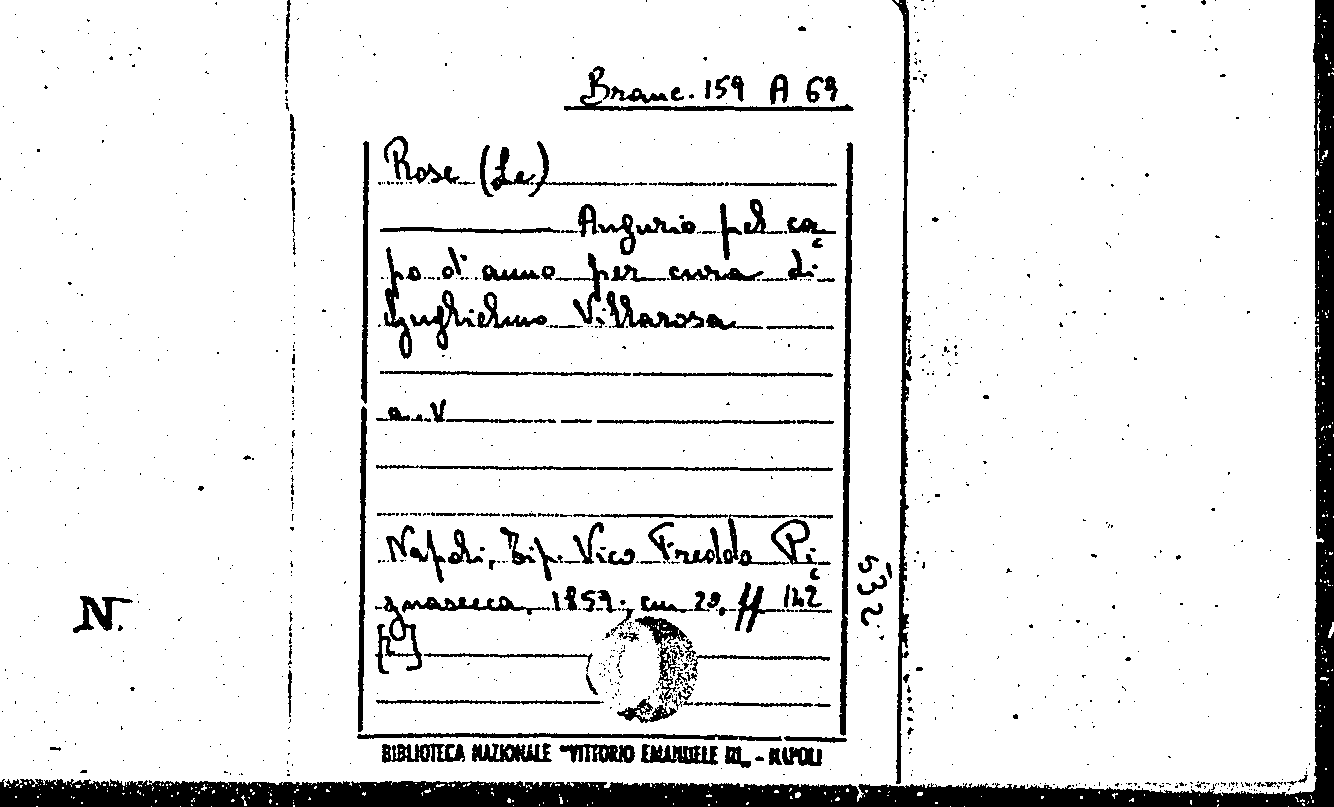 Branc. 159 A 69
Rose (Le)
Augurio pel ca
po d'anno per cura di
Guglielmo Villarosa
a. V
Napoli, Tip. Vico Freddo Pi
gnasecca, 1857, cm. 23, ff 142
[2]
532
N.
BIBLIOTECA NAZIONALE "VITTORIO EMANUELE III„ - NAPOLI